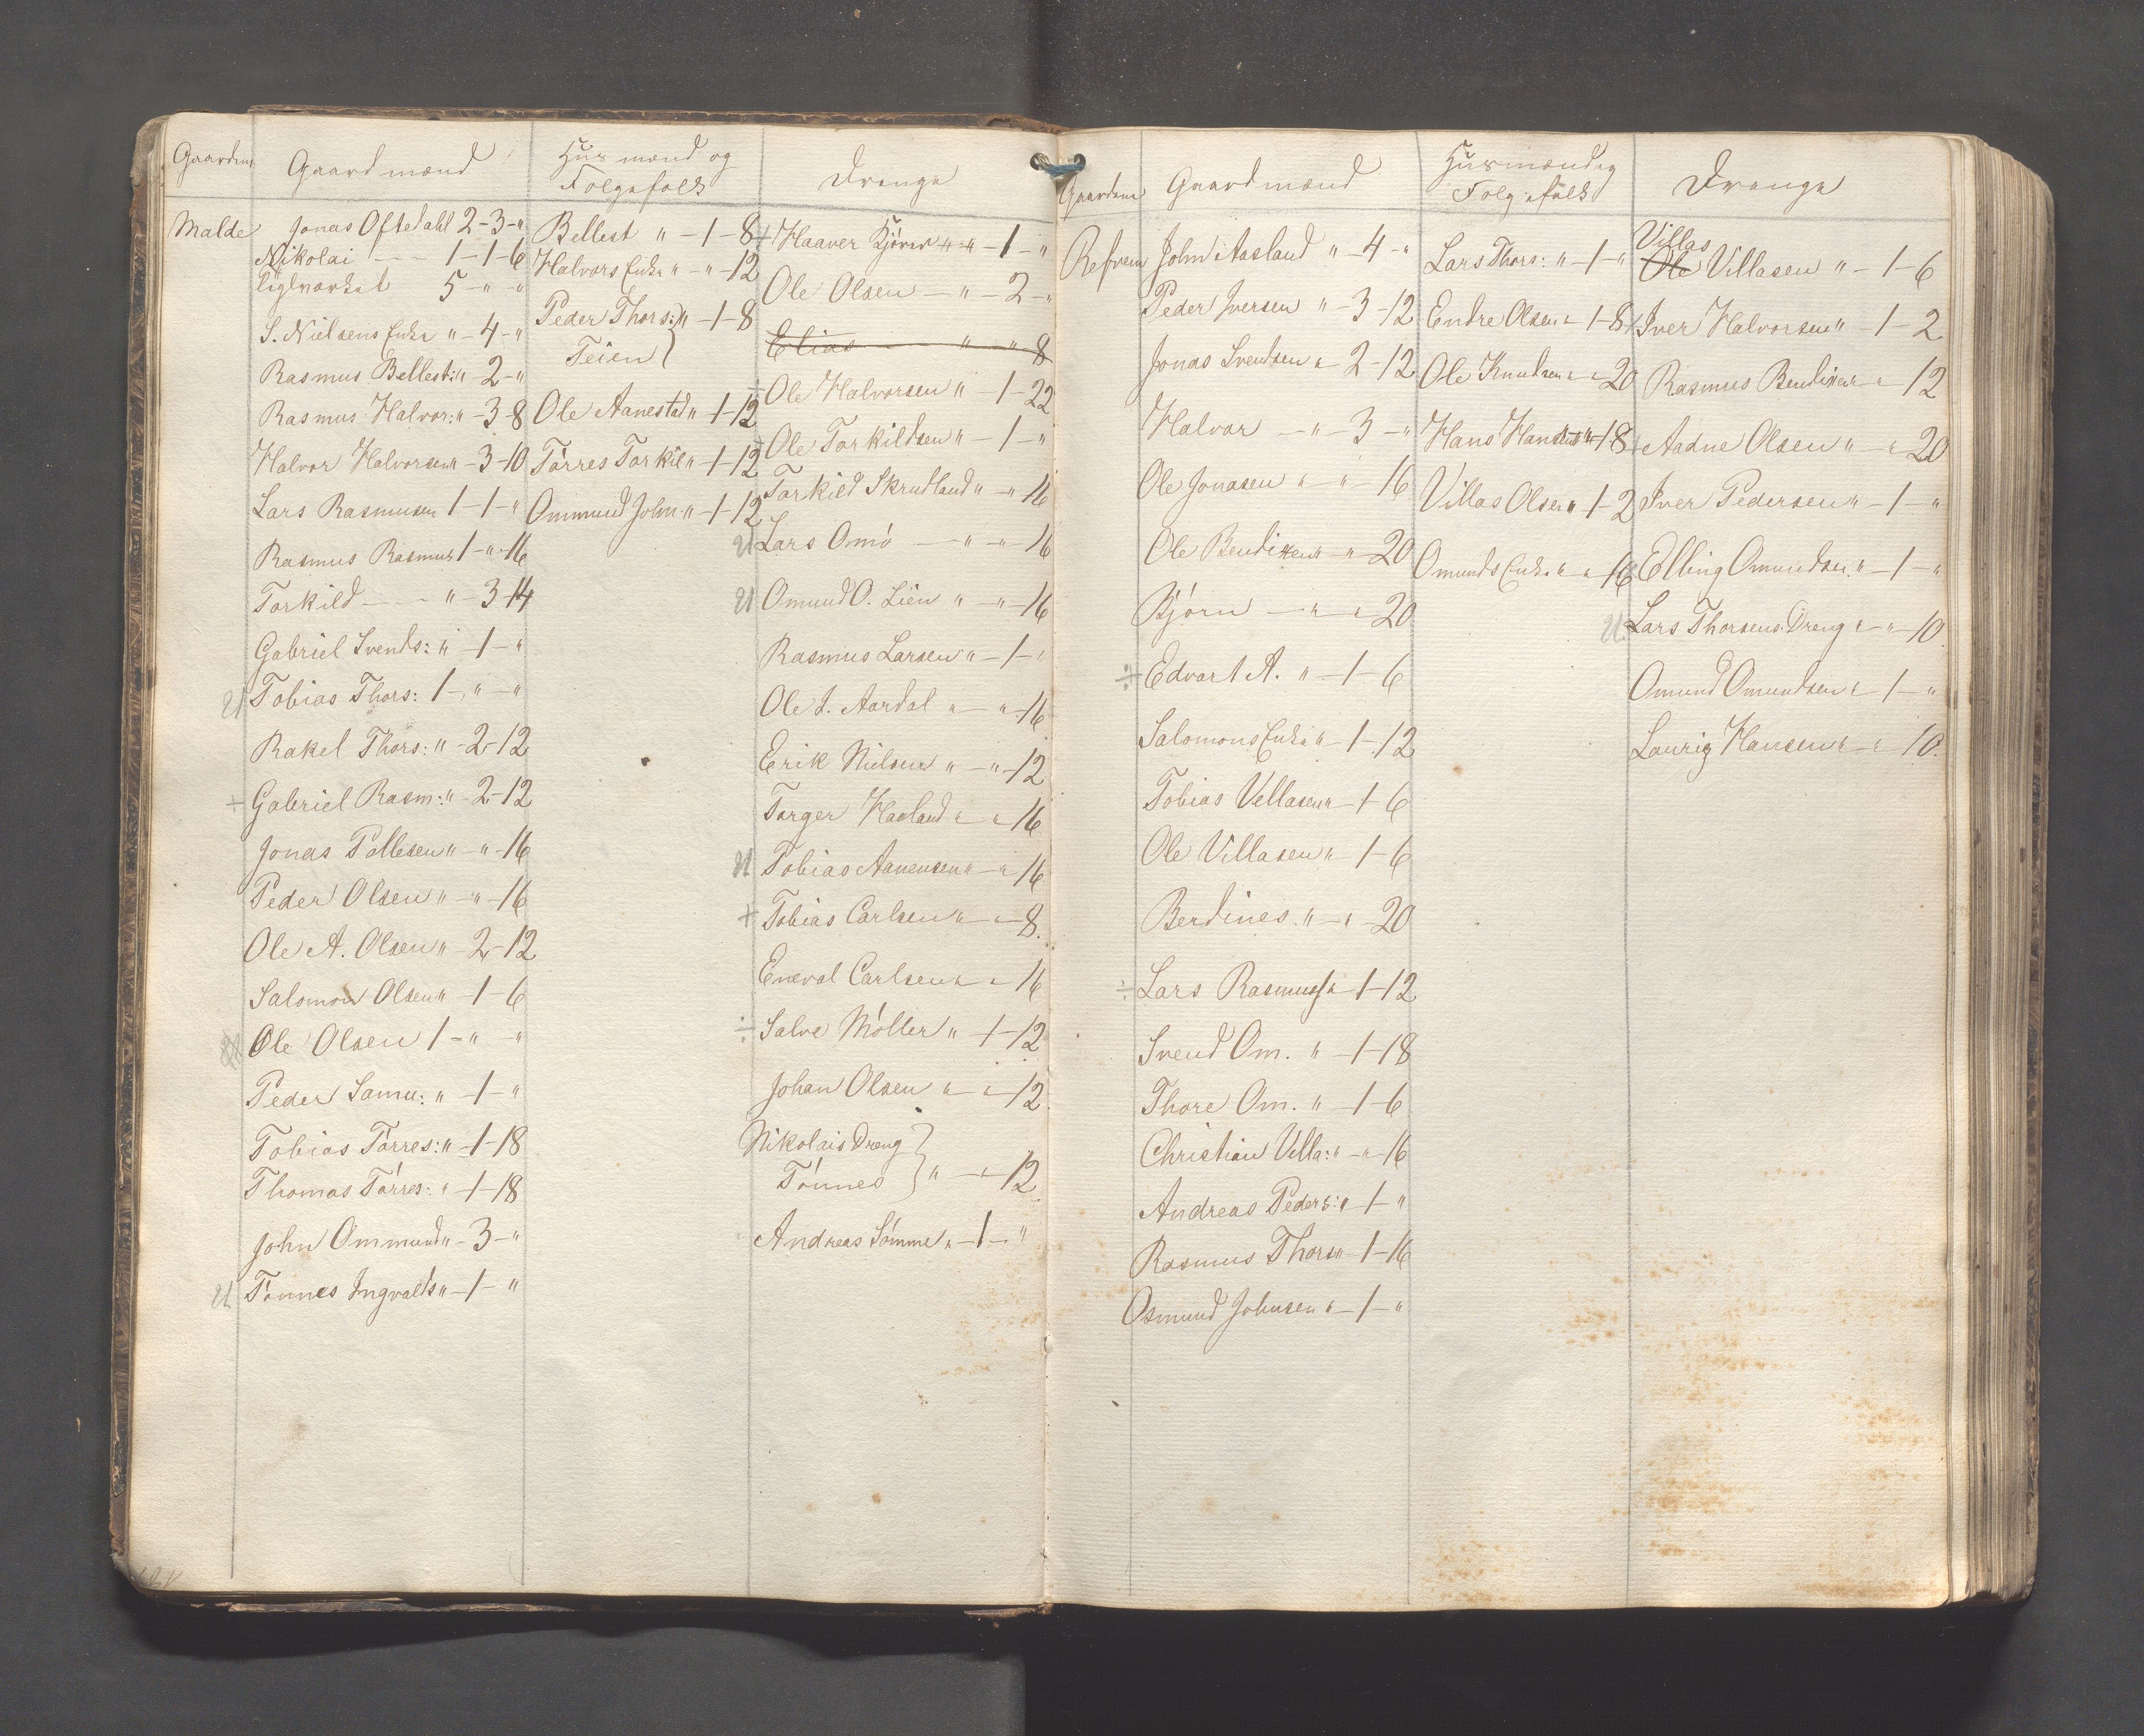 Gaardene
Gaardmænd
Husmænd og
Følgefolk
Drenge
Malde
Jonas Oftedahl 2-3-"
Nikolai - - - 1-1-6
Teglværket 5-"-"
S. Nielsens Enke "-4-"
Rasmus Bellest: "-2-"
Rasmus Halvor: "-3-8
Halvor Halvorsen "-3-10
Lars Rasmusen 1-1-"
Rasmus Rasmus 1-"-16
Torkild - - - "-3-14
Gabriel Svends: "-1-"
U Tobias Thors: 1-"-"
Rakel Thors: "-2-12
+ Gabriel Rasm: "-2-12
Jonas Pallesen "-"-16
Peder Olsen "-"-16
Ole A. Olsen "-2-12
Salomon Olsen "-1-6
Ole Olsen 1-"-"
Peder Samu: "-1-"
Tobias Tørres: "-1-18
Thomas Tørres: "-1-18
John Ommund "-3-"
U Tønnes Ingvalds "-1-"
Bellest "-1-8
Halvors Enke "-"-12
Peder Thors: } "-1-8
Teien
Ole Aanestad "-1-12
Tørres Torkil "-1-12
Ommund John "-1-12
+ Haaver Bjørn "-1-"
Ole Olsen - "-2-"
Elias - "-"-8
÷ Ole Halvorsen "-1-22
÷ Ole Torkildsen "-1-"
Torkild Skrudland "-"-16
U Lars Omø - "-"-16
U Omund O. Lien "-"-16
Rasmus Larsen "-1-"
Ole J. Aardal "-"-16
Erik Nielsen "-"-12
Torger Haaland "-"-16
U Tobias Aanensen "-"-16
+ Tobias Carlsen "-"-8.
Eneval Carlsen "-"-16
÷ Salve Møller "-1-12
Johan Olsen "-"-12
Nikolais Dreng
Tønnes } "-"-12
Andreas Sømme "-1-"
Gaardene
Gaardmænd
Husmænd og
Følgefolk
Drenge
Refvem
John Aasland "-4-"
Peder Iversen "-3-12
Jonas Svendsen "-2-12
Halvor - "-3-"
Ole Jonasen "-"-16
Ole Bendixen "-"-20
Bjørn - "-"-20
÷ Edvart A. "-1-6
Salomons Enke "-1-12
Tobias Vellasen "-1-6
Ole Villasen "-1-6
Berdines "-"-20
÷ Lars Rasmuss "-1-12
Svend Om. "-1-18
Thore Om. "-1-6
Christian Villa: "-"-16
Andreas Peders: "-1-"
Rasmus Thors "-1-16
Osmund Johnsen "-1-"
Lars Thors: "-1-"
Endre Olsen "-1-8
Ole Knudsen "-"-20
Hans Hansen "-1-8
Villas Olsen "-1-2
Omunds Enke "-"-16
Villas
Ole Villasen "-1-6
+ Iver Halvorsen "-1-2
Rasmus Bendixen "-"-12
Aadne Olsen "-"-20
Iver Pedersen "-1-"
Elling Omundsen "-1-"
U. Lars Thorsens Dreng "-"-10
Omund Omundsen "-1-"
Lauriz Hansen "-"-10.